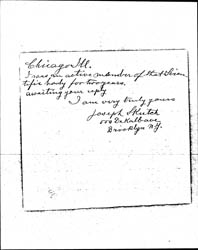 Chicago Ill.
I was an active member of that Scien
tific body for two years.
awaiting your reply
I am very truly yours
Joseph Sketch
DeKalb ave
Brooklyn N.Y.